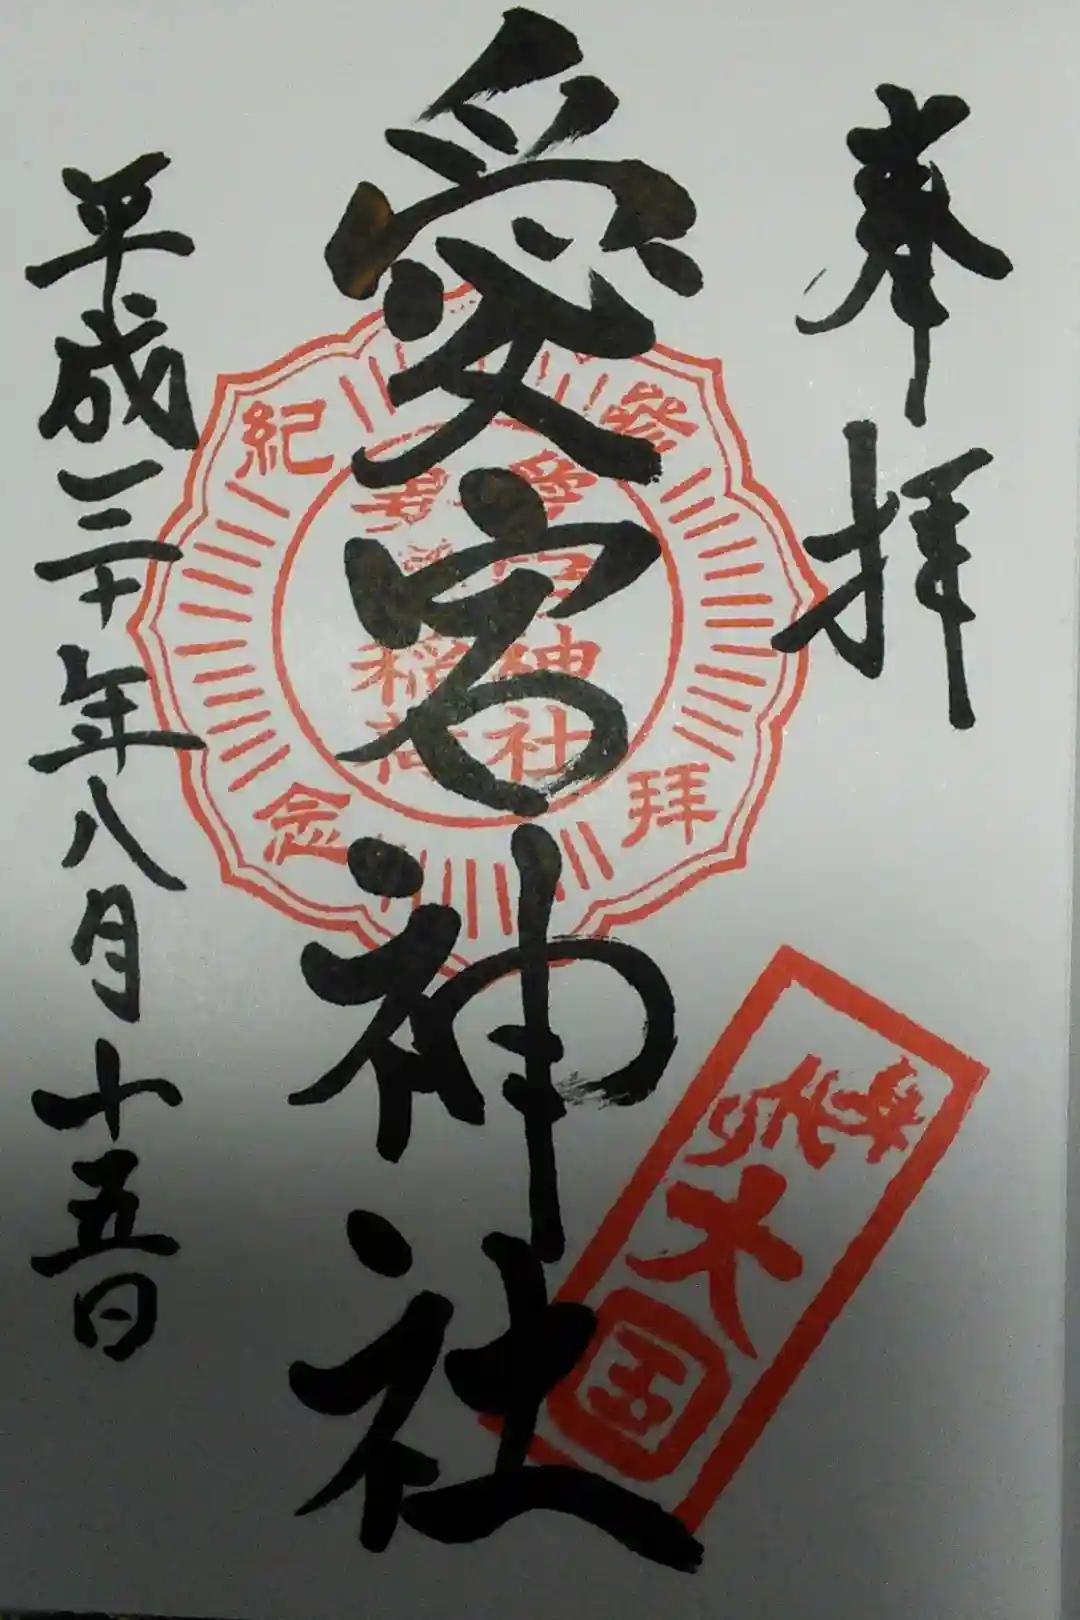 奉拝
愛宕神社
平成三十年八月十五日
參拜紀念
愛宕神社
稲荷
大国